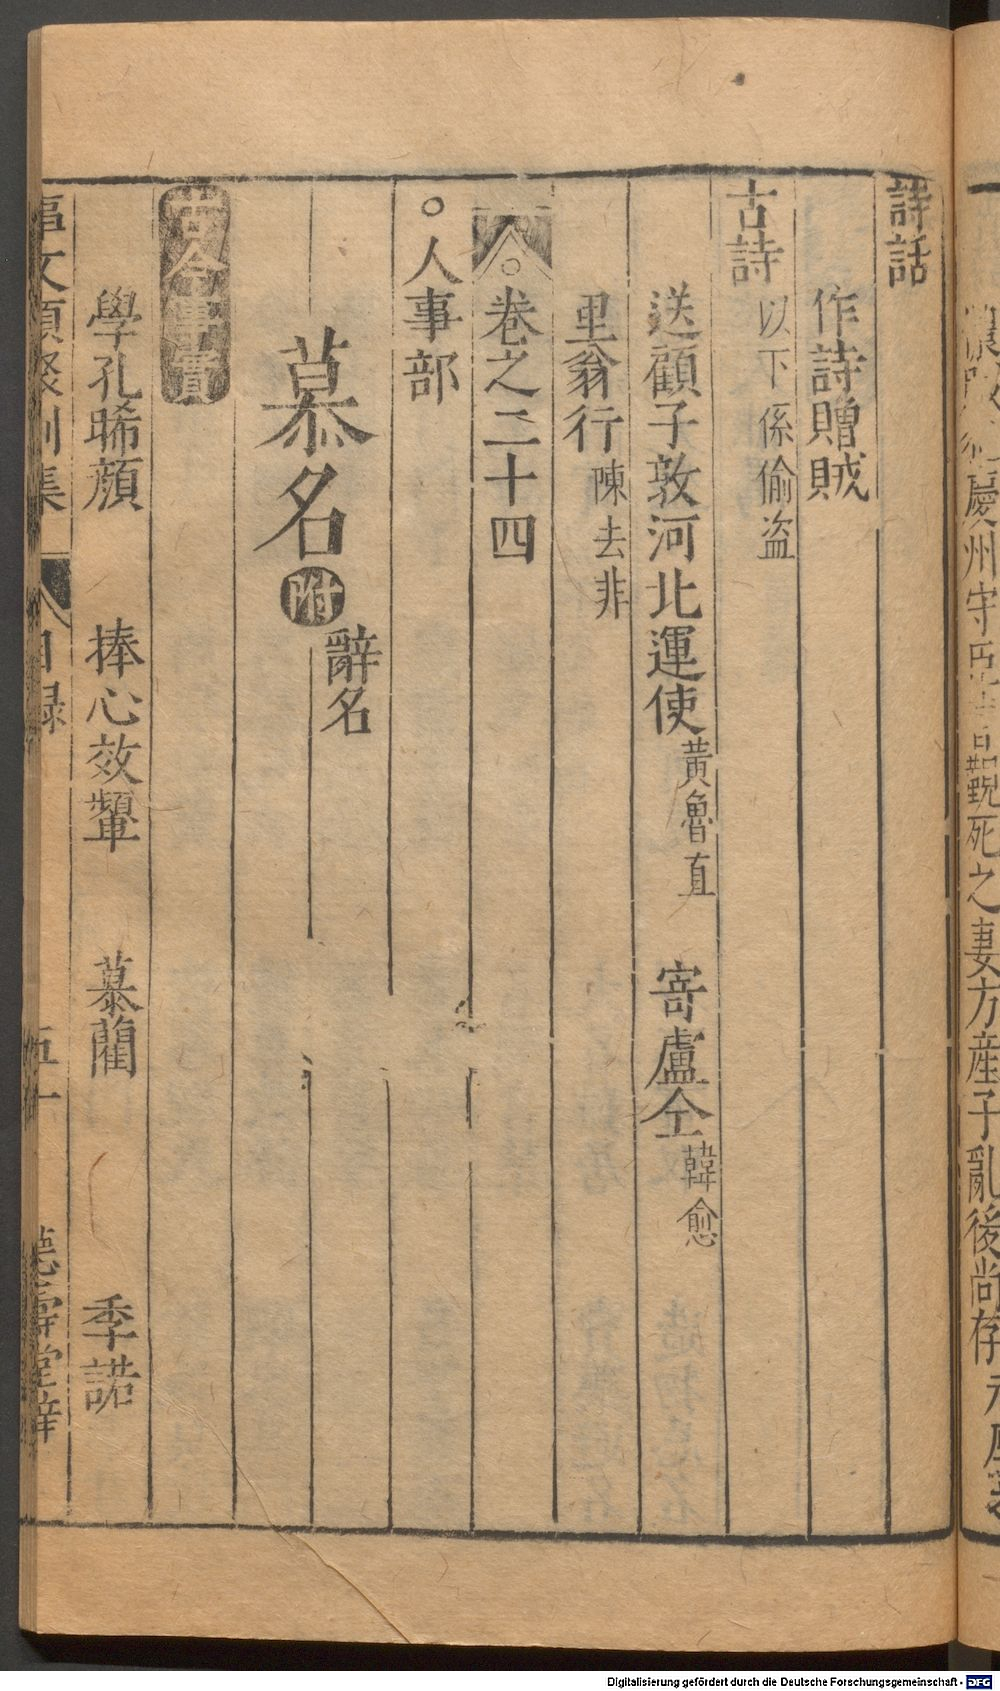 詩話
作詩贈賊
古詩 以下係偷盗
送顧子敦河北運使 黃魯直 寄盧仝 韓愈
里翁行 陳去非
○卷之二十四
○人事部
慕名 附 辭名
古今事實
學孔晞顏 捧心效顰 慕藺 季諾
事文類聚別集 目録 五十 德壽堂梓
慶州守 死之妻方産子亂後尚存
Digitalisierung gefördert durch die Deutsche Forschungsgemeinschaft - DFG